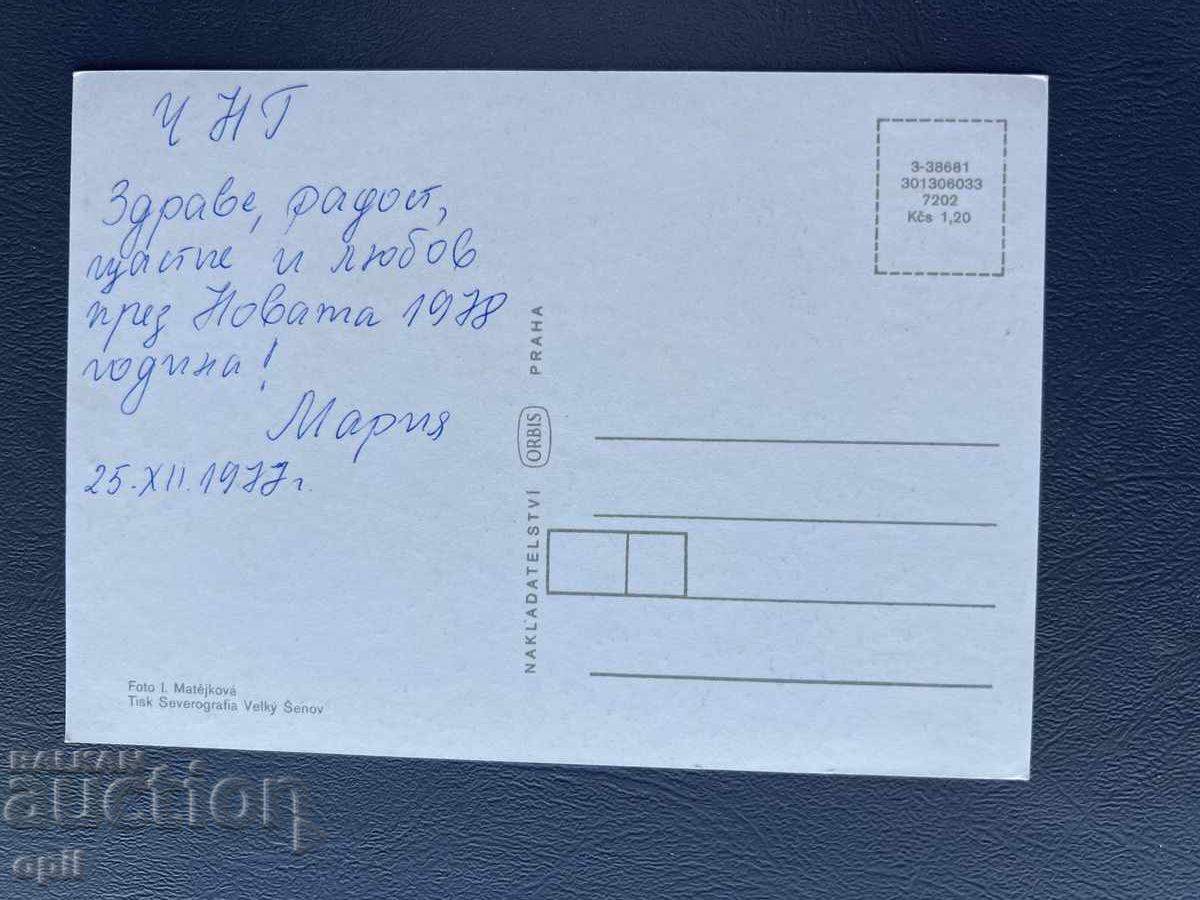 ЧНГ
Здраве, радост,
щастие и любов
през Новата 1978
година!
Мария
25.XII.1977г.
3-38681
301306033
7202
Kčs 1,20
NAKLADATELSTVÍ ORBIS PRAHA
Foto I. Matějková
Tisk Severografia Velký Šenov
BALKAN
auction
opil